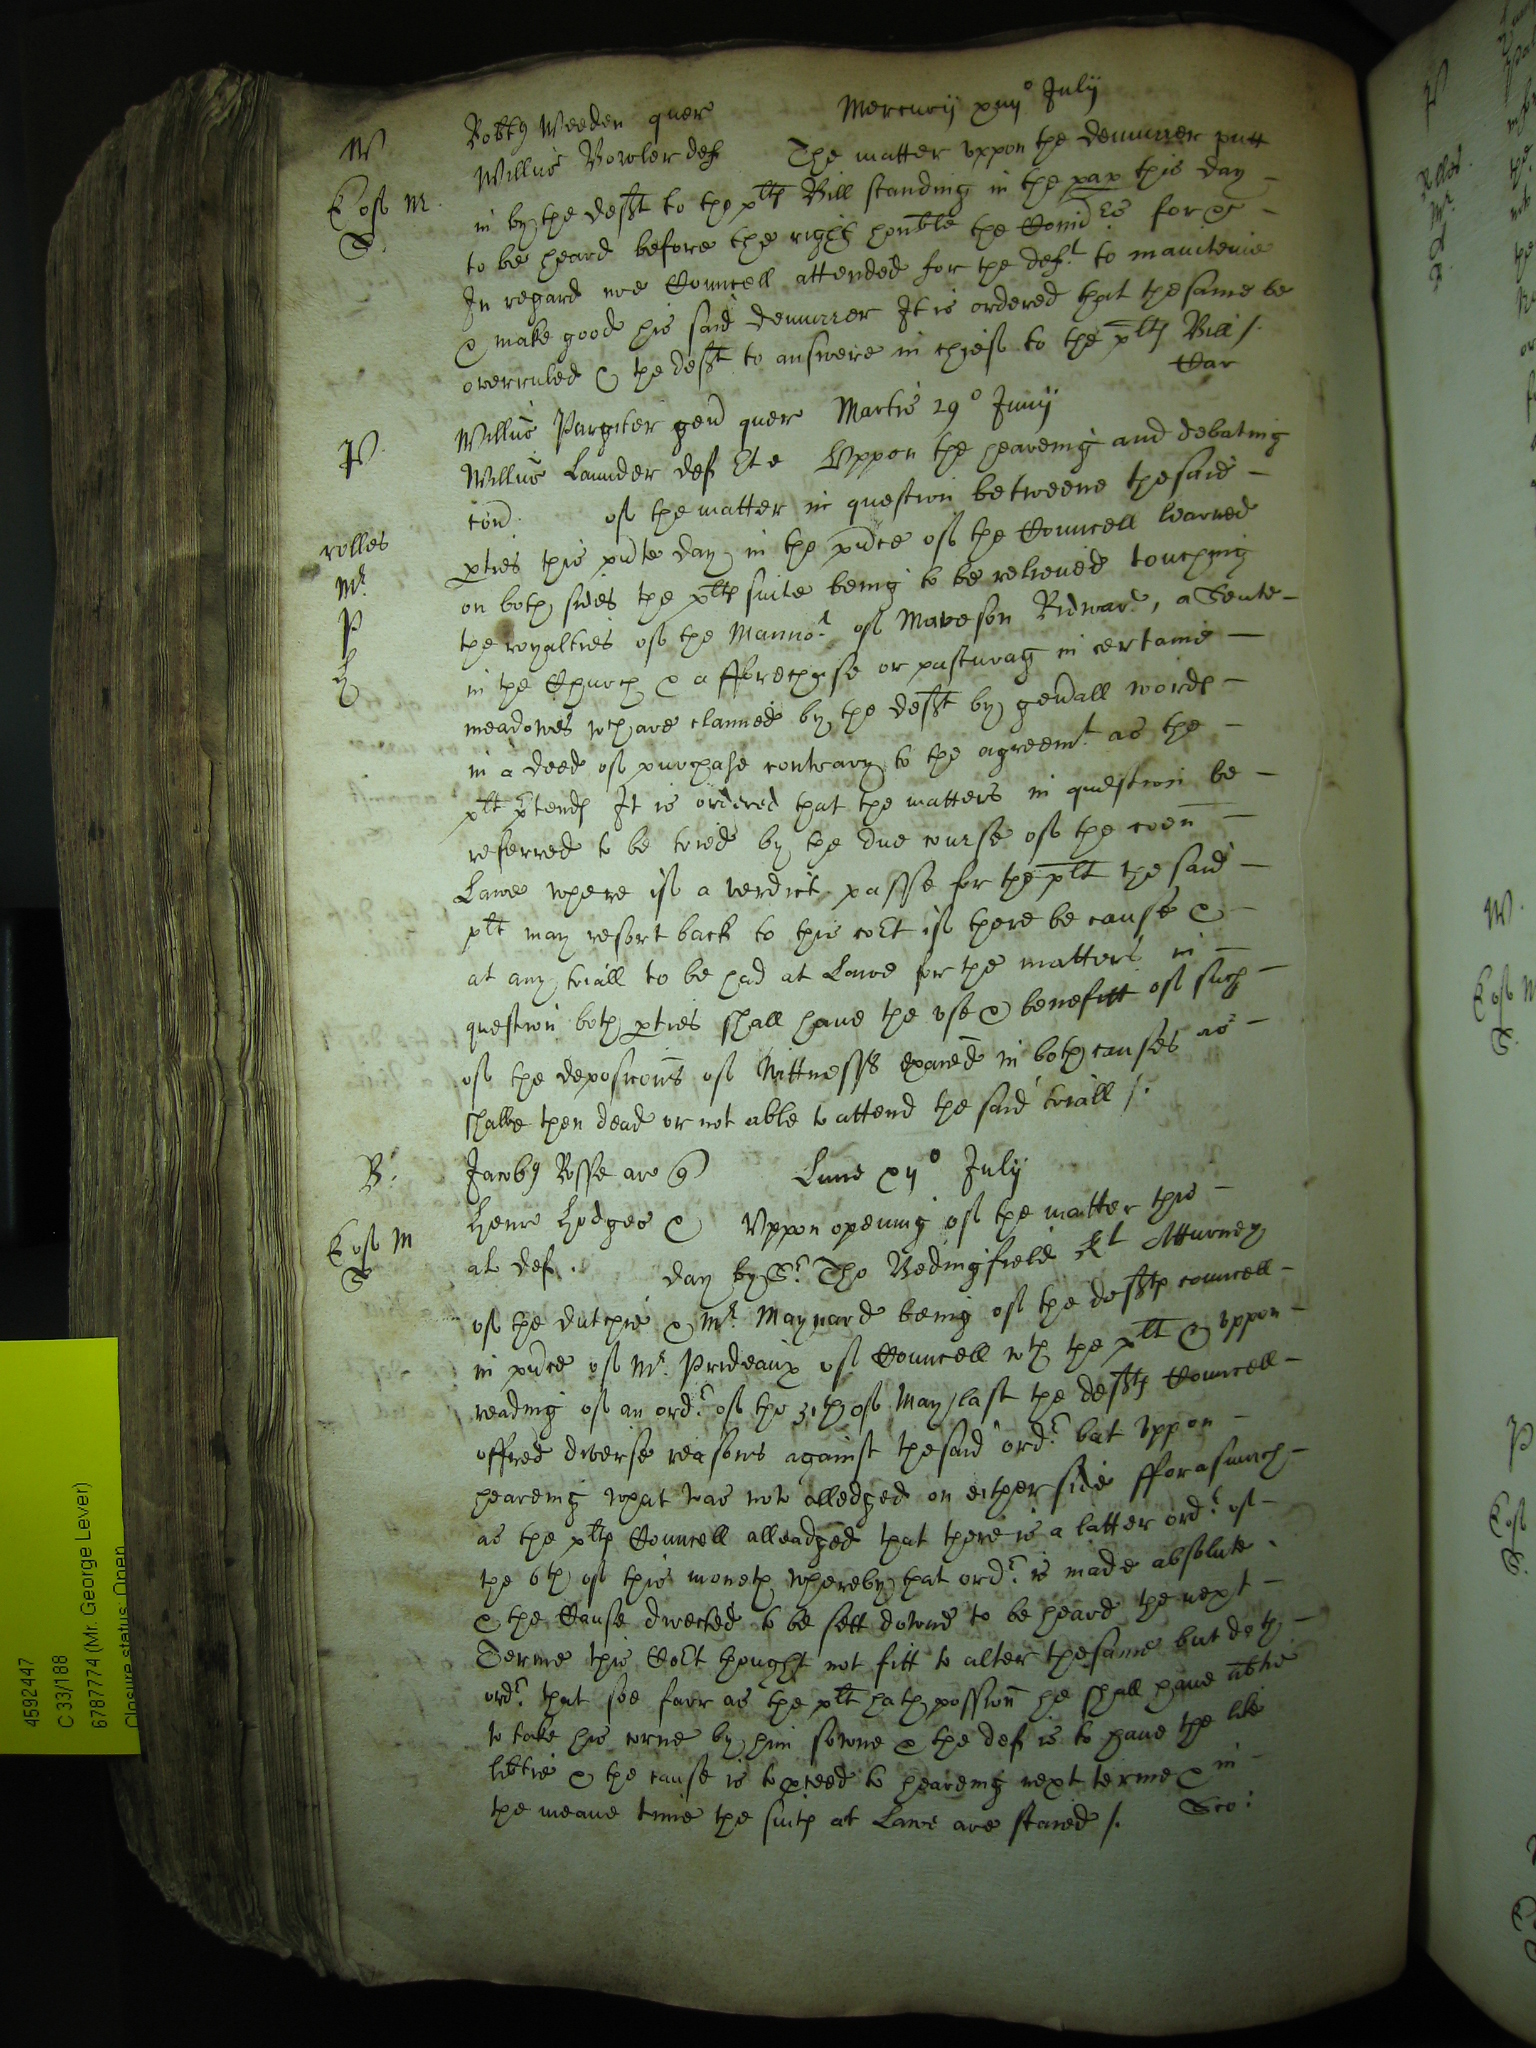 W
Robtus Weeden quer Mercurij xiiijo July
Willus Bowler def The matter uppon the demurrer putt
Cost M.
S.
in by the deft to the plts Bill standing in the pap this day
to be heard before the right honble the Comrs for &c
In regard noe Councell attended for the deft to mainteine
& make good his said demurrer It is ordered that the same be
overruled & the deft to answere in chief to the plts Bill /.
Car
P.
Willus Pargiter gen quer Martis 29o Junij
Willus Launder def Et e Uppon the heareing and debating
con. of the matter in question betweene the said
rolles
parties this pnte day in the pnce of the Councell learned
Mr
on both sides the plts suite being to be relieved touching
P
the royalties of the Mannor of Maveson Ridware, a Seate
H
in the Church & a fforechase or pasturag in certaine
meadowes wch are claimed by the deft by genall words
in a deed of purchase contrary to the agreemt as the
plt ptends It is ordered that the matters in question be
referred to be tried by the due course of the coen
Lawe where if a verdict passe for the plt the said
plt may resort back to this cort if there be cause &
at any triall to be had at Lawe for the matters in
question both pties shall have the use & benefitt of such
of the deposicons of Wittnesss exaied in both causes as
shalbe then dead or not able to attend the said triall /.
B.
Jacobus Rosse ar q Lune xijo July
Henr Hodges & Uppon opening of the matter this
Cost M
S
al def. day by Sr Tho Bedingfield Kt Atturney
of the dutchie & Mr Maynard being of the defts councell
in pnce of Mr. Prideaux of Councell wth the plt & uppon
reading of an ordr of the 31th of May last the defts Councell
offred diverse reasons against the said ordr but uppon
heareing what was now alledged on either side fforasmuch
as the plts Councell alleadged that there is a latter ordr of
the 6th of this moneth whereby that ordr is made absolute
& the Cause directed to be sett downe to be heard the next
Terme this Cort thought not fitt to alter the same but doth
ordr that soe farr as the plt hath possion he shall have libtie
to take his corne by him sowne & the def is to have the like
libtie & the cause is to pceed to heareing next terme & in
the meane time the suits at Lawe are staied /. Sco:
4592447
C 33/188
6787774 (Mr. George Lever)
Closure status: Open